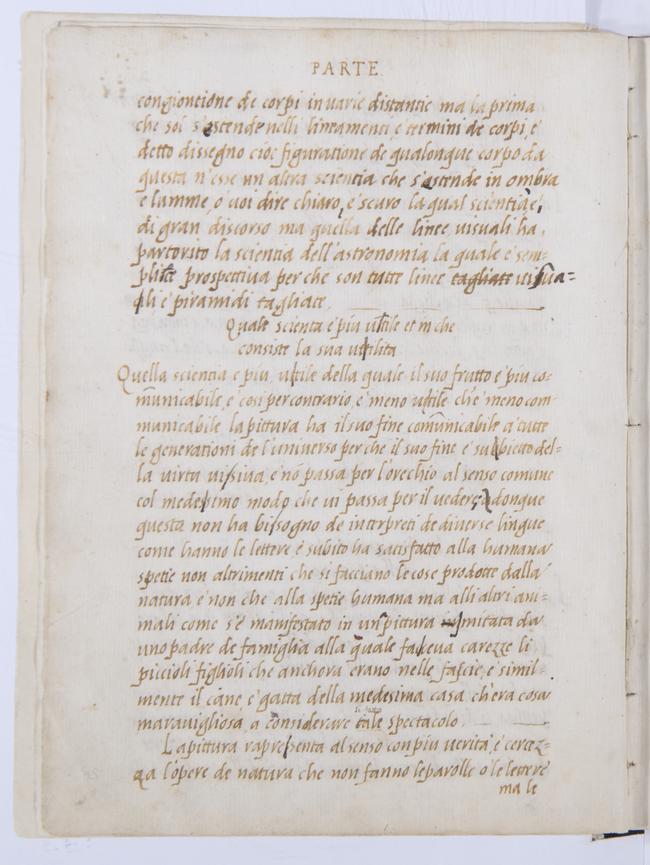 PARTE
congiontione de corpi in uarie distantie ma la prima
che sol s'estende nelli lineamenti e termini de corpi, é
detto dissegno cioe figuratione de qualonque corpo da
questa n'esse un altra scientia che s'estende in ombra
e lumme, o uoi dire chiaro, e scuro la qual scientia e,
di gran discorso ma quella delle linee uisuali ha,
partorito la scientia dell'astronomia la quale e sem-
plice prospettiua per che son tutte linee tagliate uisua=
li e piramidi tagliate.
Quale scienta e piu utile et in che
consiste la sua utilita
Quella scientia e piu, utile della quale il suo frutto e piu co-
municabile, e cosi per contrario, e meno utile ch'e meno com-
municabile la pittura ha il suo fine comunicabile a tutte
le generationi de l'uniuerso per che il suo fine e subbietto del=
la uirtu uisiua, e nō passa per l'orechio al senso comune
col medesimo modo che ui passa per il uedere, adonque
questa non ha bissogno de interpreti de diuerse lingue
come hanno le lettere e subito ha satisfatto alla humana
spetie non altrimenti che si facciano le cose prodotte dalla
natura, e non che alla spetie humana ma alli altri ani-
mali come s'e manifestato in un pittura imitata da
uno padre de famiglia alla quale faceua carezze li
piccioli figlioli che anchora erano nelle fascie, e simil-
mente il cane, e gatta della medesima casa ch'era cosa
marauigliosa a considerare tale spectacolo.
La pittura rapresenta al senso con piu uerita, e certez=
za l'opere de natura che non fanno le parolle o le lettere
ma le